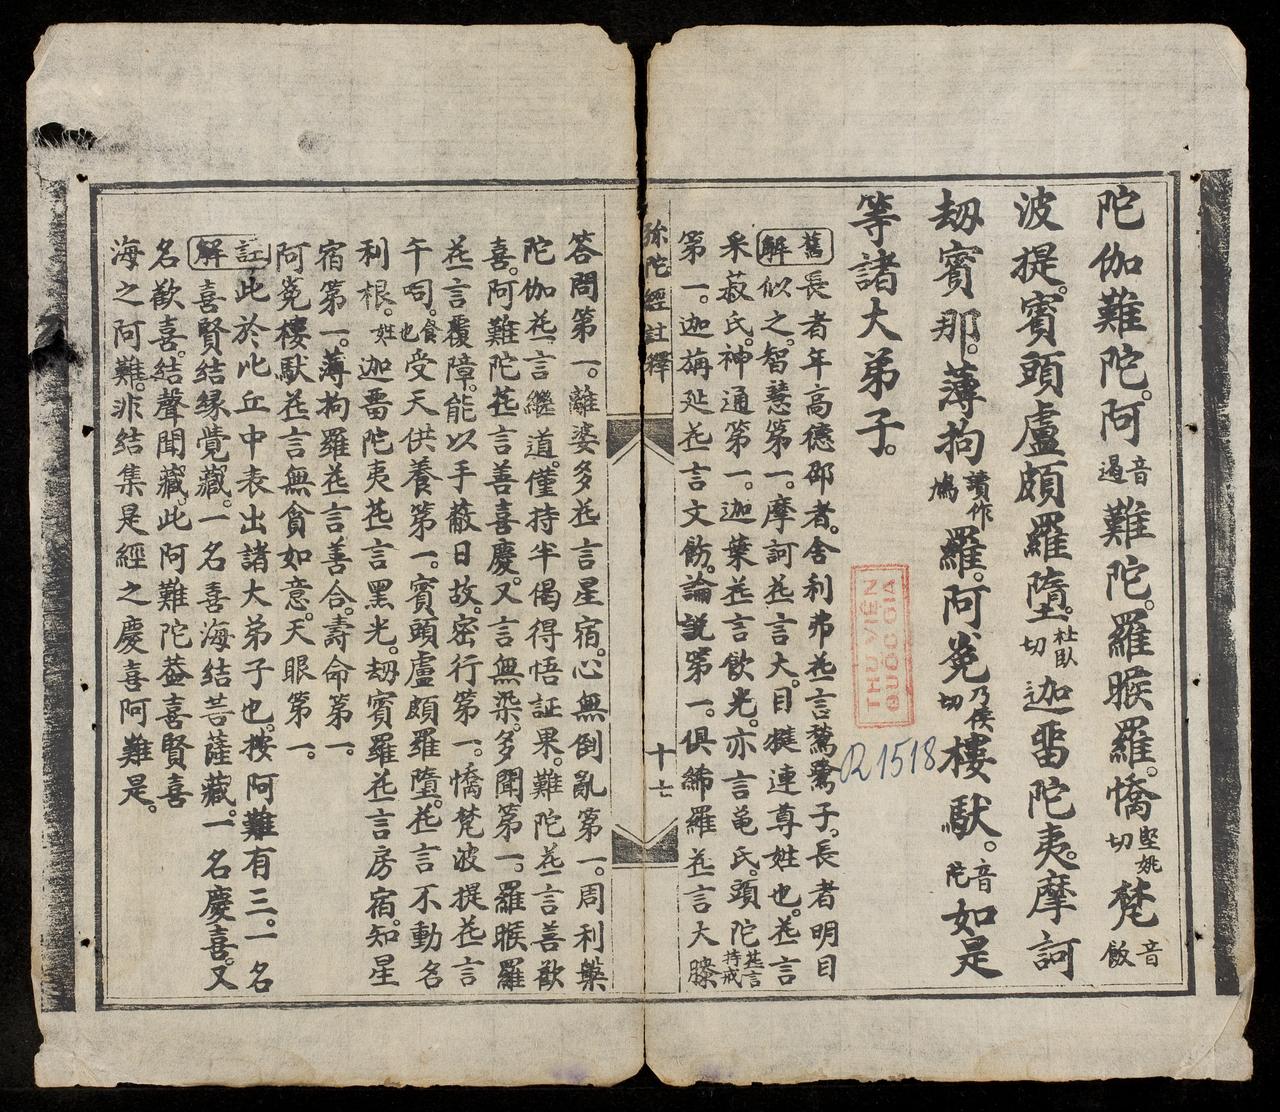 陀伽難陀。阿音過難陀。羅睺羅。憍堅姚切梵音飯
波提。賓頭盧頗羅墮。杜臥切迦畱陀夷。摩訶
劫賓那。薄拘讀作鳩羅。阿㝹乃侯切樓馱。音陀如是
等諸大弟子。
舊解長者年高德邵者。舍利弗花言鶖鷺子。長者明目
似之。智慧第一。摩訶花言大。目犍連尊姓也。花言
采菽氏。神通第一。迦葉花言飲光。亦言龟氏。頭陀花言持戒
第一。迦旃延花言文飭。論説第一。俱絺羅花言大膝
彌陀經註釋
十七
答問第一。離婆多花言星宿。心無倒亂第一。周利槃
陀伽花言繼道。僅持半偈得悟証果。難陀花言善歡
喜。阿難陀花言善喜慶。又言無染。多聞第一。羅睺羅
花言覆障。能以手蔽日故。密行第一。憍梵波提花言
午呞。食也受天供養第一。賓頭盧頗羅墮。花言不動名
利根。姓迦畱陀夷花言黑光。劫賓羅花言房宿。知星
宿第一。薄拘羅花言善合。壽命第一。
阿㝹樓馱花言無貪如意。天眼第一。
註此於比丘中表出諸大弟子也。按阿難有三。一名
解喜賢結緣覺藏。一名喜海結菩薩藏。一名慶喜。又
名歡喜。結聲聞藏。此阿難陀葢喜賢喜
海之阿難。非結集是經之慶喜阿難是。
THƯ VIỆN
QUỐC GIA
R1518